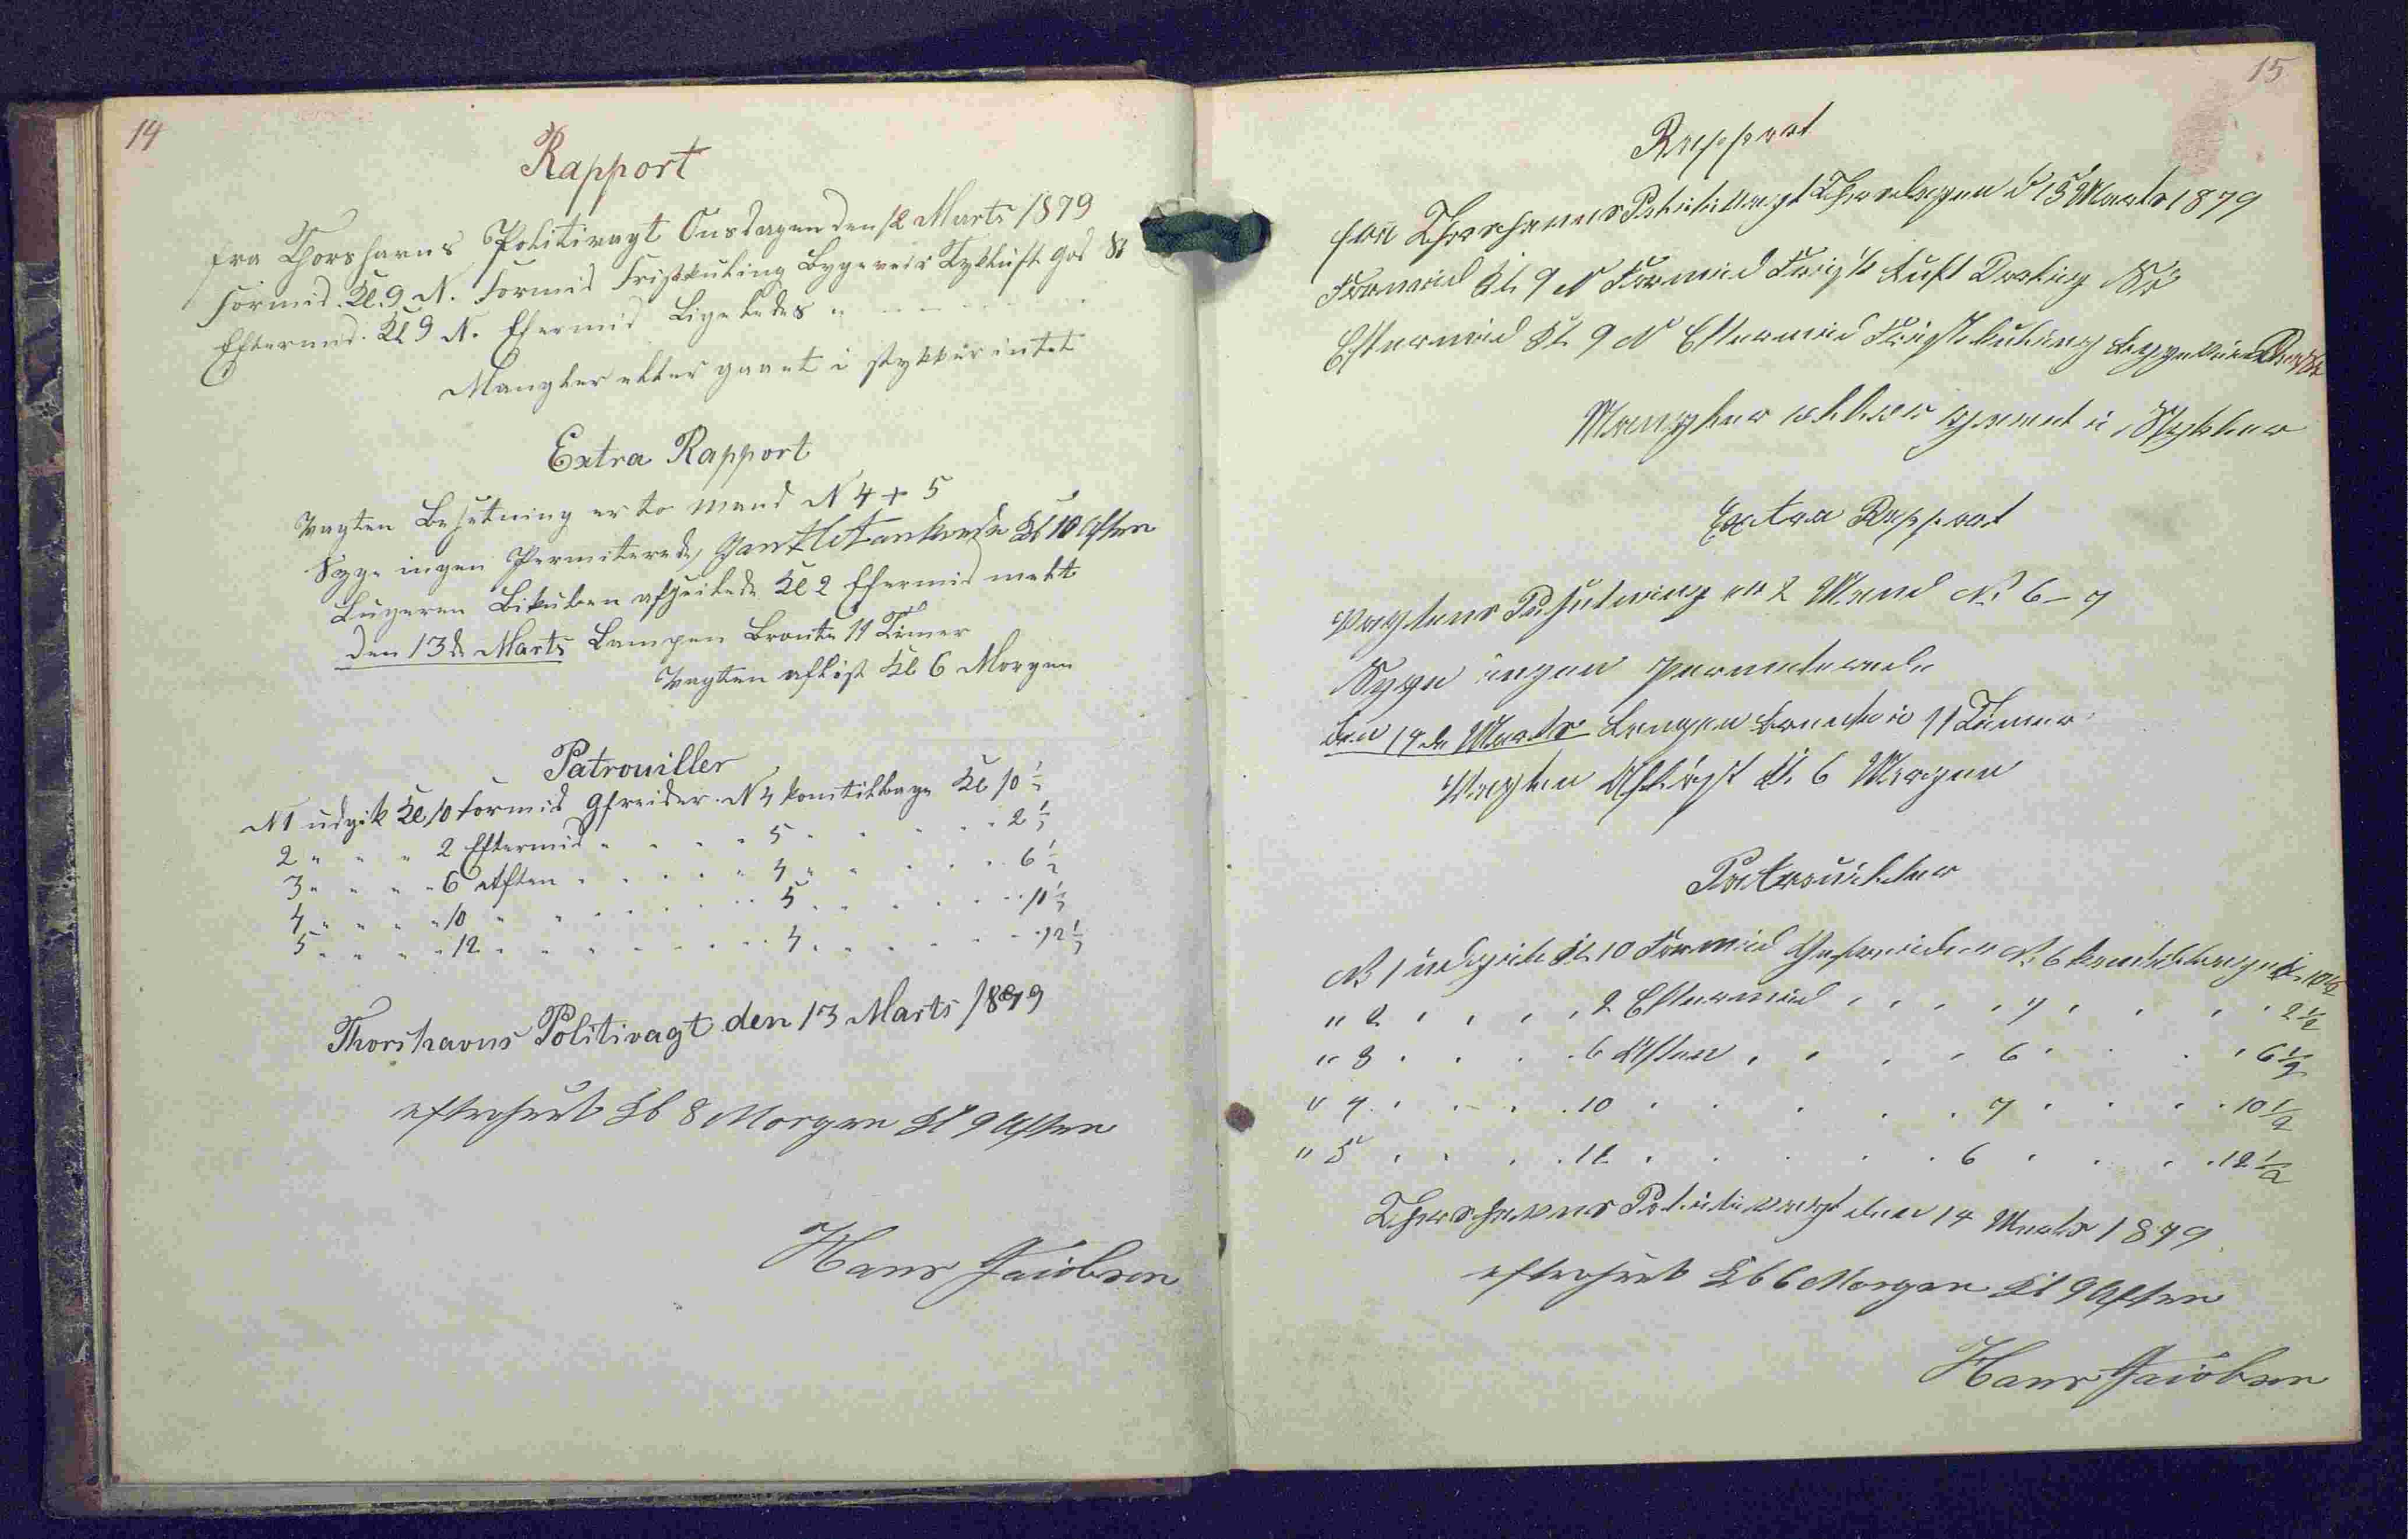 14
Rapport
fra Thorshavns Politivagt Onsdagen den 12 Marts 1879
Formid. Kl. 9 N. Formid Friskkuling Bygeveir Tykluft God St
Eftermid. Kl 9 N. Efermid Ligeledes " - - -
Mangler eller gaaet i stykker intet
Extra Rapport
Vagten Besetning er to mand N 4 + 5
Syge ingen Permiterede, Kl 10 Aften
Lugeren Bikuben afseilede Kl 2 Efermid
den 13de Marts Lampen Brente 11 Timer
Vagten afløst Kl 6 Morgen
Patrouiller
N 1 udgik Kl 10 Formid Gfreider N 4 kom tilbage Kl 10 ½
2 " " " 2 Eftermid " " " " 5 " " " " 2 ½
3 " " " " 6 Aften " " " " " 4 " " " " 6 ½
4 " " " " 10 " " " " " " 5 " " " " 10 ½
5 " " " " 12 " " " " " " 4 " " " " 12 ½
Thorshavns Politivagt den 13 Marts 1879
efterseet Kl 8 Morgen Kl 9 Aften
Hans Jacobsen
15
Rapport
fra Thorshavns Politivagt Thorsdagen d 13 Marts 1879
Formid Kl 9 N Formid Frisk Luft
Eftermid Kl 9 N Eftermid Friskkuling bygeveir
Mangler eller gaaet i Stykker
Extra Rapport
Vagtens Besetning er 2 Mand N. 6 - 7
Syge ingen Permiterede
den 14de Marts Lampen brente i 11 Timer
Vagten Afløst Kl. 6 Morgen
Patrouiller
N 1 udgik Kl. 10 Formid Gefreider N. 6 kom tilbage Kl. 10 ½
" 2 " " " " 2 Eftermid " " " " 7 " " " " 2 ½
" 3 " " " " 6 Aften " " " " 6 " " " " 6 ½
" 4 " " " " 10 " " " " " 7 " " " " 10 ½
" 5 " " " " 12 " " " " " 6 " " " " 12 ½
Thorshavns Politivagt den 14 Marts 1879
efterseet Kl 6 Morgen Kl 9 Aften
Hans Jacobsen